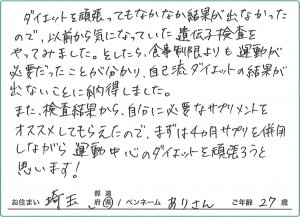 ダイエットを頑張ってもなかなか結果が出なかった
ので、以前から気になっていた遺伝子検査を
やってみました。そしたら、食事制限よりも運動が
必要だったことが分かり、自己流ダイエットの結果が
出ないことに納得しました。
また、検査結果から、自分に必要なサプリメントを
オススメしてもらえたので、まずは4ヵ月サプリを併用
しながら運動中心のダイエットを頑張ろうと
思います!
お住まい 埼玉 都道府県 / ペンネーム ありさん ご年齢 27歳